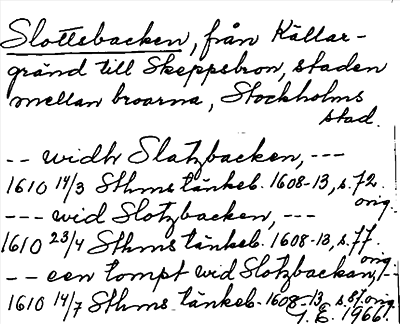 Slottsbacken, från Källar-
gränd till Skeppsbron, staden
mellan broarna, Stockholms
stad.
-- widh Slatzbacken, ---
1610 14/3 Sthms tänkeb. 1608-13, s. 72.
orig.
--- wid Slotzbacken, ---
1610 23/4 Sthms tänkeb. 1608-13, s. 77.
orig.
-- een tompt wid Slotzbackan, --
1610 14/7 Sthms tänkeb. 1608-13, s. 81. orig.
G. E. 1966.